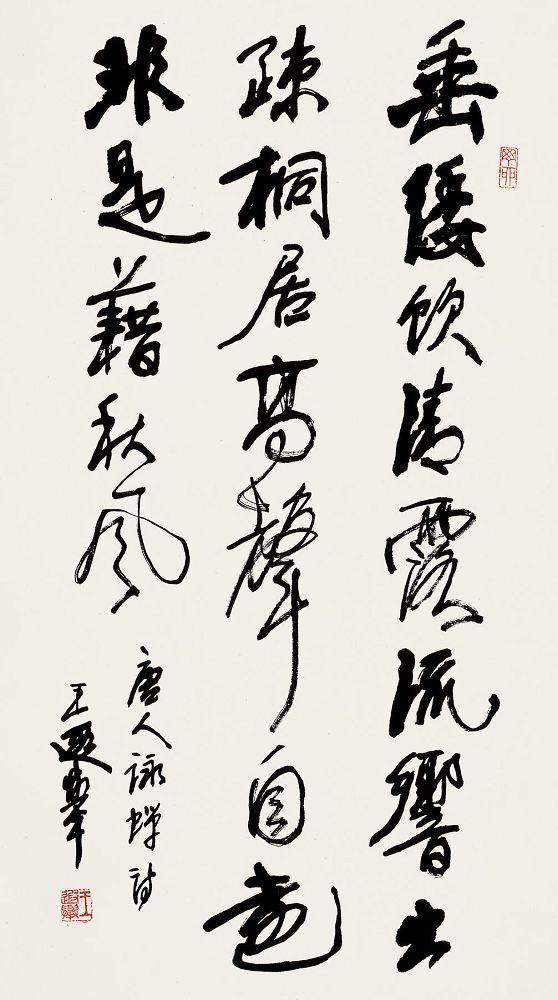 垂緌飲清露流響出
疎桐居高聲自遠
非是藉秋風
唐人詠蟬詩
王遐舉
癸卯
王遐舉